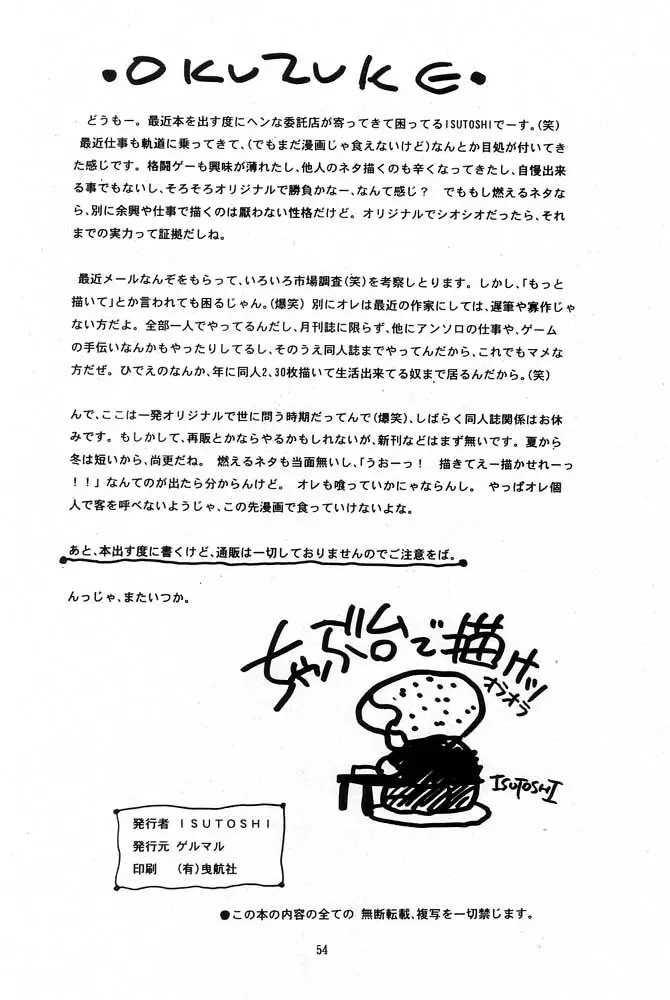 •OKUZUKE•
どうもー。最近本を出す度にヘンな委託店が寄ってきて困ってるISUTOSHIでーす。(笑)
最近仕事も軌道に乗ってきて、(でもまだ漫画じゃ食えないけど)なんとか目処が付いてき
た感じです。格闘ゲーも興味が薄れたし、他人のネタ描くのも辛くなってきたし、自慢出来
る事でもないし、そろそろオリジナルで勝負かなー、なんて感じ? でももし燃えるネタな
ら、別に余興や仕事で描くのは厭わない性格だけど。オリジナルでシオシオだったら、それ
までの実力って証拠だしね。
最近メールなんぞをもらって、いろいろ市場調査(笑)を考察しとります。しかし、「もっと
描いて」とか言われても困るじゃん。(爆笑) 別にオレは最近の作家にしては、遅筆や寡作じゃ
ない方だよ。全部一人でやってるんだし、月刊誌に限らず、他にアンソロの仕事や、ゲーム
の手伝いなんかもやったりしてるし、そのうえ同人誌までやってんだから、これでもマメな
方だぜ。ひでえのなんか、年に同人2、30枚描いて生活出来てる奴まで居るんだから。(笑)
んで、ここは一発オリジナルで世に問う時期だってんで(爆笑)、しばらく同人誌関係はお休
みです。もしかして、再販とかならやるかもしれないが、新刊などはまず無いです。夏から
冬は短いから、尚更だね。 燃えるネタも当面無いし、「うおーっ! 描きてえー描かせれーっ
!!」なんてのが出たら分からんけど。 オレも喰っていかにゃならんし。 やっぱオレ個
人で客を呼べないようじゃ、この先漫画で食っていけないよな。
あと、本出す度に書くけど、通販は一切しておりませんのでご注意をば。
んっじゃ、またいつか。
ちゃぶ台で描けッ!
オラオラ
ISUTOSHI
発行者 ISUTOSHI
発行元 ゲルマル
印刷 (有)曳航社
●この本の内容の全ての 無断転載、複写を一切禁じます。
54